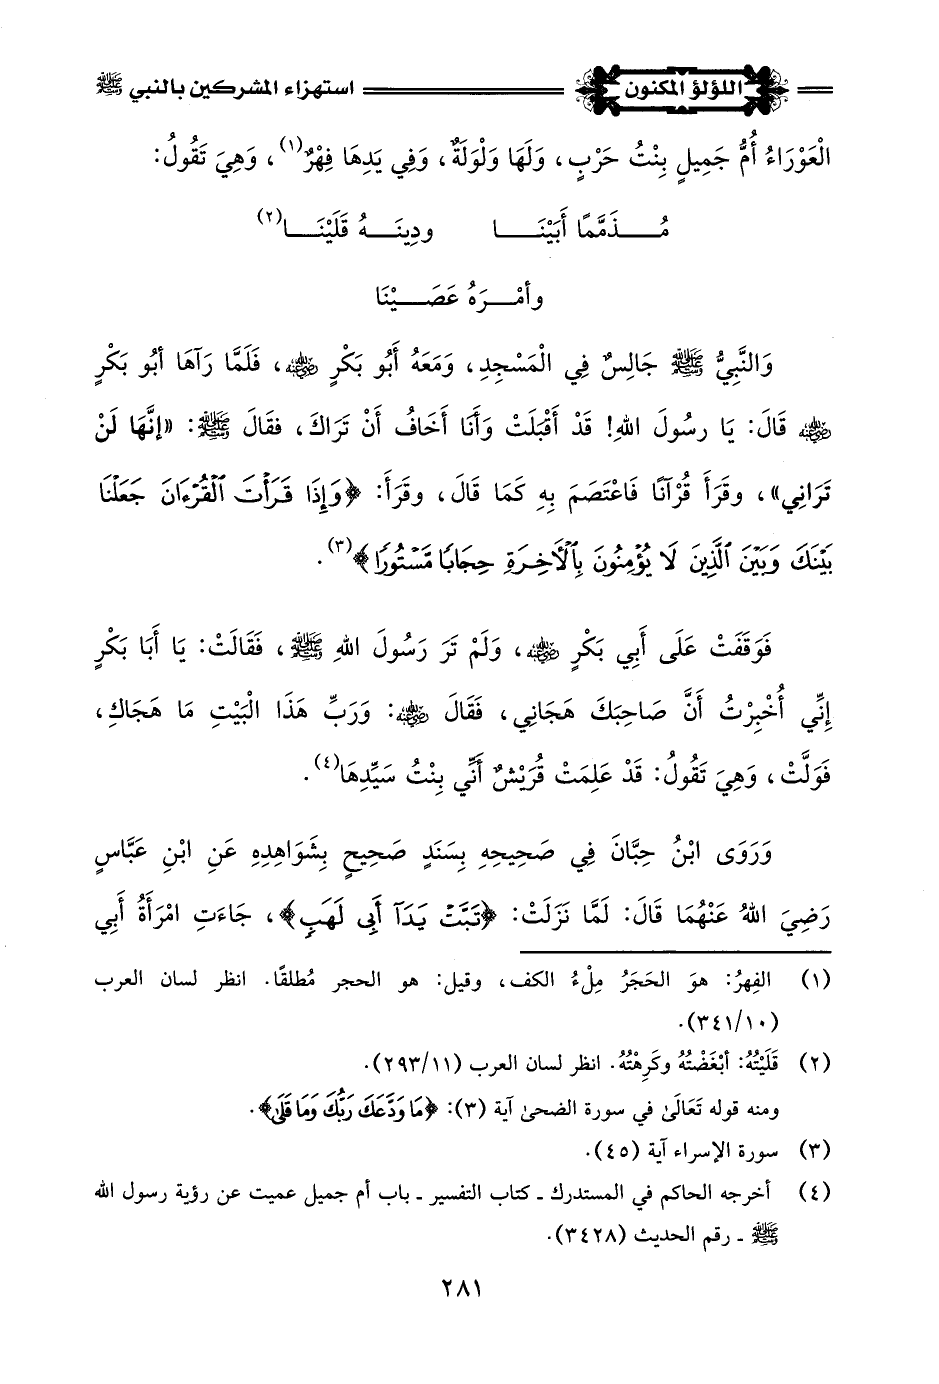 اللؤلؤ المكنون استهزاء المشركين بالنبي ﷺ
الْعَوْرَاءُ أُمُّ جَمِيلٍ بِنْتُ حَرْبٍ، وَلَهَا وَلْوَلَةٌ، وَفِي يَدِهَا فِهْرٌ(١)، وَهِيَ تَقُولُ:
مُـــذَمَّمًا أَبَيْنَـــا ودِينَــهُ قَلَيْنَــا(٢)
وأمْــرَهُ عَصَــيْنَا
وَالنَّبِيُّ ﷺ جَالِسٌ فِي الْمَسْجِدِ، وَمَعَهُ أَبُو بَكْرٍ رضي الله عنه، فَلَمَّا رَآهَا أَبُو بَكْرٍ
رضي الله عنه قَالَ: يَا رسُولَ اللهِ! قَدْ أَقْبَلَتْ وَأَنَا أَخَافُ أَنْ تَرَاكَ، فقَالَ ﷺ: «إنَّهَا لَنْ
تَرَانِي»، وقَرَأَ قُرْآنًا فَاعْتَصَمَ بِهِ كَمَا قَالَ، وقَرَأَ: ﴿وَإِذَا قَرَأْتَ ٱلْقُرْءَانَ جَعَلْنَا
بَيْنَكَ وَبَيْنَ ٱلَّذِينَ لَا يُؤْمِنُونَ بِٱلْأَخِرَةِ حِجَابًا مَّسْتُورًا﴾(٣).
فَوَقَفَتْ عَلَى أَبِي بَكْرٍ رضي الله عنه، وَلَمْ تَرَ رَسُولَ اللهِ ﷺ، فَقَالَتْ: يَا أَبَا بَكْرٍ
إنِّي أُخْبِرْتُ أَنَّ صَاحِبَكَ هَجَانِي، فَقَالَ رضي الله عنه: وَرَبِّ هَذَا الْبَيْتِ مَا هَجَاكِ،
فَوَلَّتْ، وَهِيَ تَقُولُ: قَدْ عَلِمَتْ قُرَيْشٌ أَنِّي بِنْتُ سَيِّدِهَا(٤).
وَرَوَى ابْنُ حِبَّانَ فِي صَحِيحِهِ بِسَنَدٍ صَحِيحٍ بِشَوَاهِدِهِ عَنِ ابْنِ عَبَّاسٍ
رَضِيَ اللهُ عَنْهُمَا قَالَ: لَمَّا نَزَلَتْ: ﴿تَبَّتْ يَدَآ أَبِى لَهَبٍ﴾، جَاءَتِ امْرَأَةُ أَبِي
(١) الفِهرُ: هوَ الحَجَرُ مِلْءُ الكف، وقيل: هو الحجر مُطلقًا. انظر لسان العرب
(٣٤١/١٠).
(٢) قَلَيْتُهُ: أبْغَضْتُهُ وكَرِهْتُهُ. انظر لسان العرب (٢٩٣/١١).
ومنه قوله تَعَالَىٰ في سورة الضحىٰ آية (٣): ﴿مَا وَدَّعَكَ رَبُّكَ وَمَا قَلَىٰ﴾.
(٣) سورة الإسراء آية (٤٥).
(٤) أخرجه الحاكم في المستدرك ـ كتاب التفسير ـ باب أم جميل عميت عن رؤية رسول الله
ﷺ ـ رقم الحديث (٣٤٢٨).
٢٨١